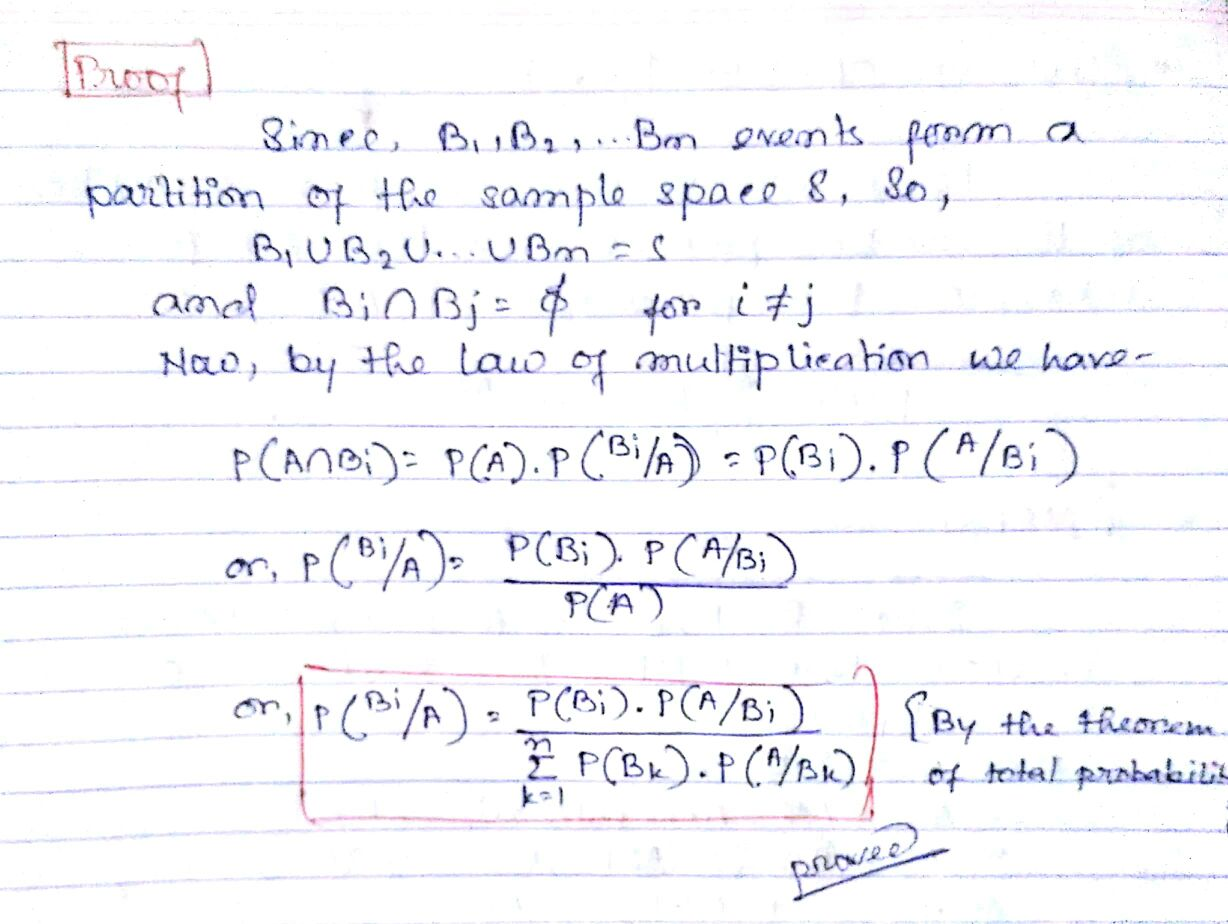 Proof
Since, B₁, B₂, ... Bn events form a
partition of the sample space S, So,
B₁ ∪ B₂ ∪ ... ∪ Bn = S
and Bi ∩ Bj = ϕ for i ≠ j
Now, by the law of multiplication we have-
P(A∩Bi) = P(A). P(Bi/A) = P(Bi). P(A/Bi)
or, P(Bi/A) = P(Bi). P(A/Bi)
P(A)
or, P(Bi/A) = P(Bi). P(A/Bi) {By the theorem
n Σ k=1 P(Bk). P(A/Bk) of total probabilit
proved